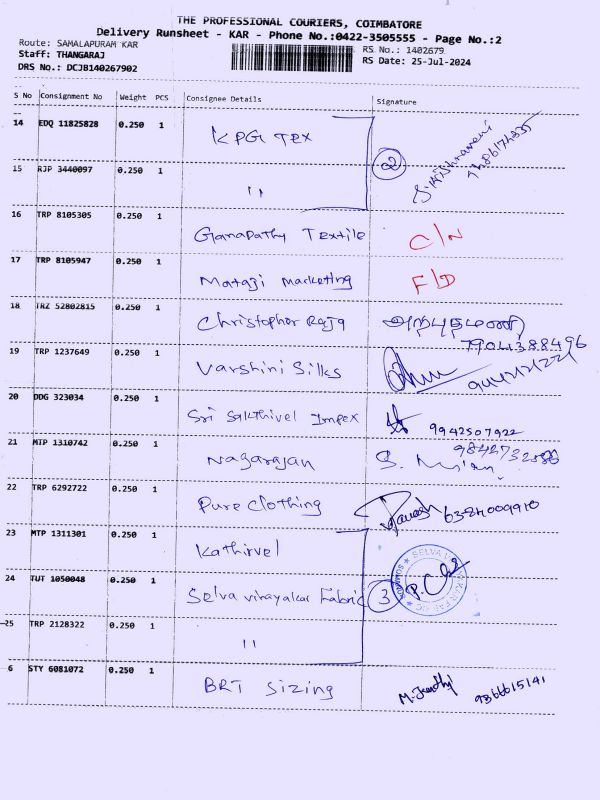 THE PROFESSIONAL COURIERS, COIMBATORE
Delivery Runsheet - KAR - Phone No.:0422-3505555 - Page No.:2
Route: SAMALAPURAM KAR
RS No.: 1402679
Staff: THANGARAJ
RS Date: 25-Jul-2024
DRS No.: DCJB140267902
S No Consignment No Weight PCS Consignee Details Signature
14 EDQ 11825828 0.250 1 KPG Tex
15 RJP 3440097 0.250 1 "
2
16 TRP 8105305 0.250 1 Ganapathy Textile C/N
17 TRP 8105947 0.250 1 Mataji Marketing F/D
18 TRZ 52802815 0.250 1 Christopher Raja
7904388496
19 TRP 1237649 0.250 1 Varshini Silks
20 DDG 323034 0.250 1 Sri Sakthivel Impex 9942507922
21 MTP 1310742 0.250 1 Nagarajan
22 TRP 6292722 0.250 1 Pure Clothing 6384009910
23 MTP 1311301 0.250 1 Kathirvel
24 TUT 1050048 0.250 1 Selva vinayakar Fabric 3
25 TRP 2128322 0.250 1 "
6 STY 6081072 0.250 1 BRT Sizing 9366615141